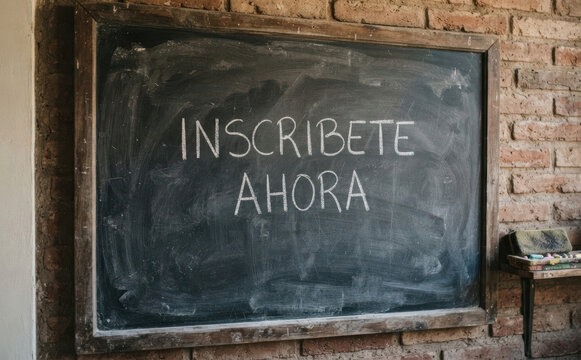 INSCRIBETE
AHORA